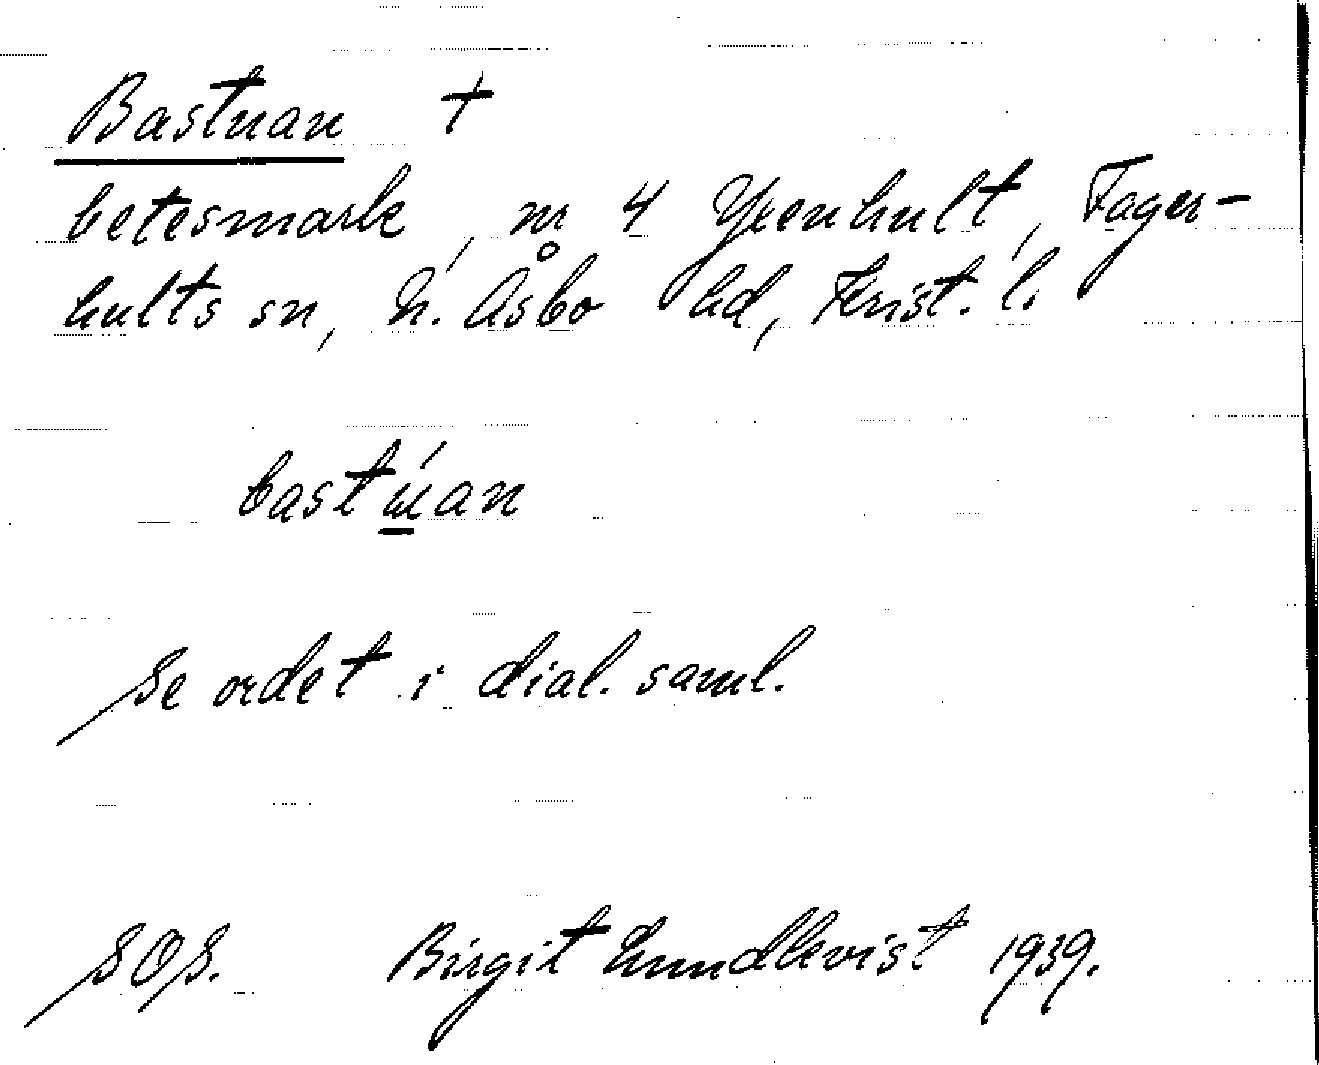 Bastuan †
betesmark, nr 4 Yxenhult, Fager-
hults sn, N. Åsbo hd, Krist. l.
bastúan
Se ordet i dial. saml.
SOS. Birgit Lundkvist 1939.